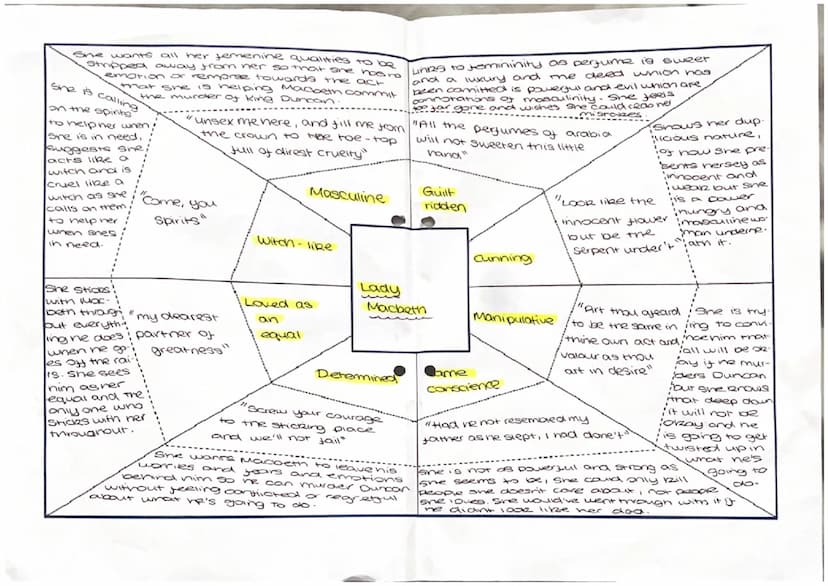 She wants all her femenine qualities to be
stripped away from her so that she has no
emotion or remorse towards the act
that she is helping Macbeth commit
the murder of King Duncan.
"unsex me here, and fill me from
the crown to the toe-top
full of direst cruelty"
Masculine
Links to femininity as perfume is sweet
and a luxury and the deed which has
been comitted is powerful and evil which are
connotations of masculinity. She feels
too far gone and wishes she could redo her
mistakes.
"All the perfumes of arabia
will not sweeten this little
hand"
Guilt
ridden
She is calling
on the spirits
to help her when
she is in need,
suggests she
acts like a
witch and is
cruel like a
witch as she
calls on them
to help her
when shes
in need.
"Come, you
spirits"
Witch-like
Shows her dup-
licious nature,
of how she pre-
sents herself as
innocent and
weak but she
is a power
hungry and
masculine wo-
man undern-
ath it.
"Look like the
innocent flower
but be the
serpent under't"
Cunning
Lady
Macbeth
She sticks
with Mac-
beth through-
out everyth-
ing he does
when he go-
es off the rai-
ls. She sees
him as her
equal and the
only one who
sticks with her
throughout.
"my dearest
partner of
greatness"
Loved as
an
equal
Manipulative
"Art thou afeard
to be the same in
thine own act and
valour as thou
art in desire"
She is try-
ing to convi-
nce him that
all will be ok-
ay if he mur-
ders Duncan
but she knows
that deep down
it will not be
okay and he
is going to get
twisted up in
what he's
going to
do.
Determined
"Screw your courage
to the sticking place
and we'll not fail"
She wants Macbeth to leave his
worries and fears and emotions
behind him so he can murder Duncan
without feeling conflicted or regretful
about what he's going to do.
ome
conscience
"Had he not resembled my
father as he slept, I had done't"
She is not as powerful and strong as
she seems to be, she could only kill
people she doesn't care about, not people
she loves. She would've went through with it if
he didnt look like her dad.